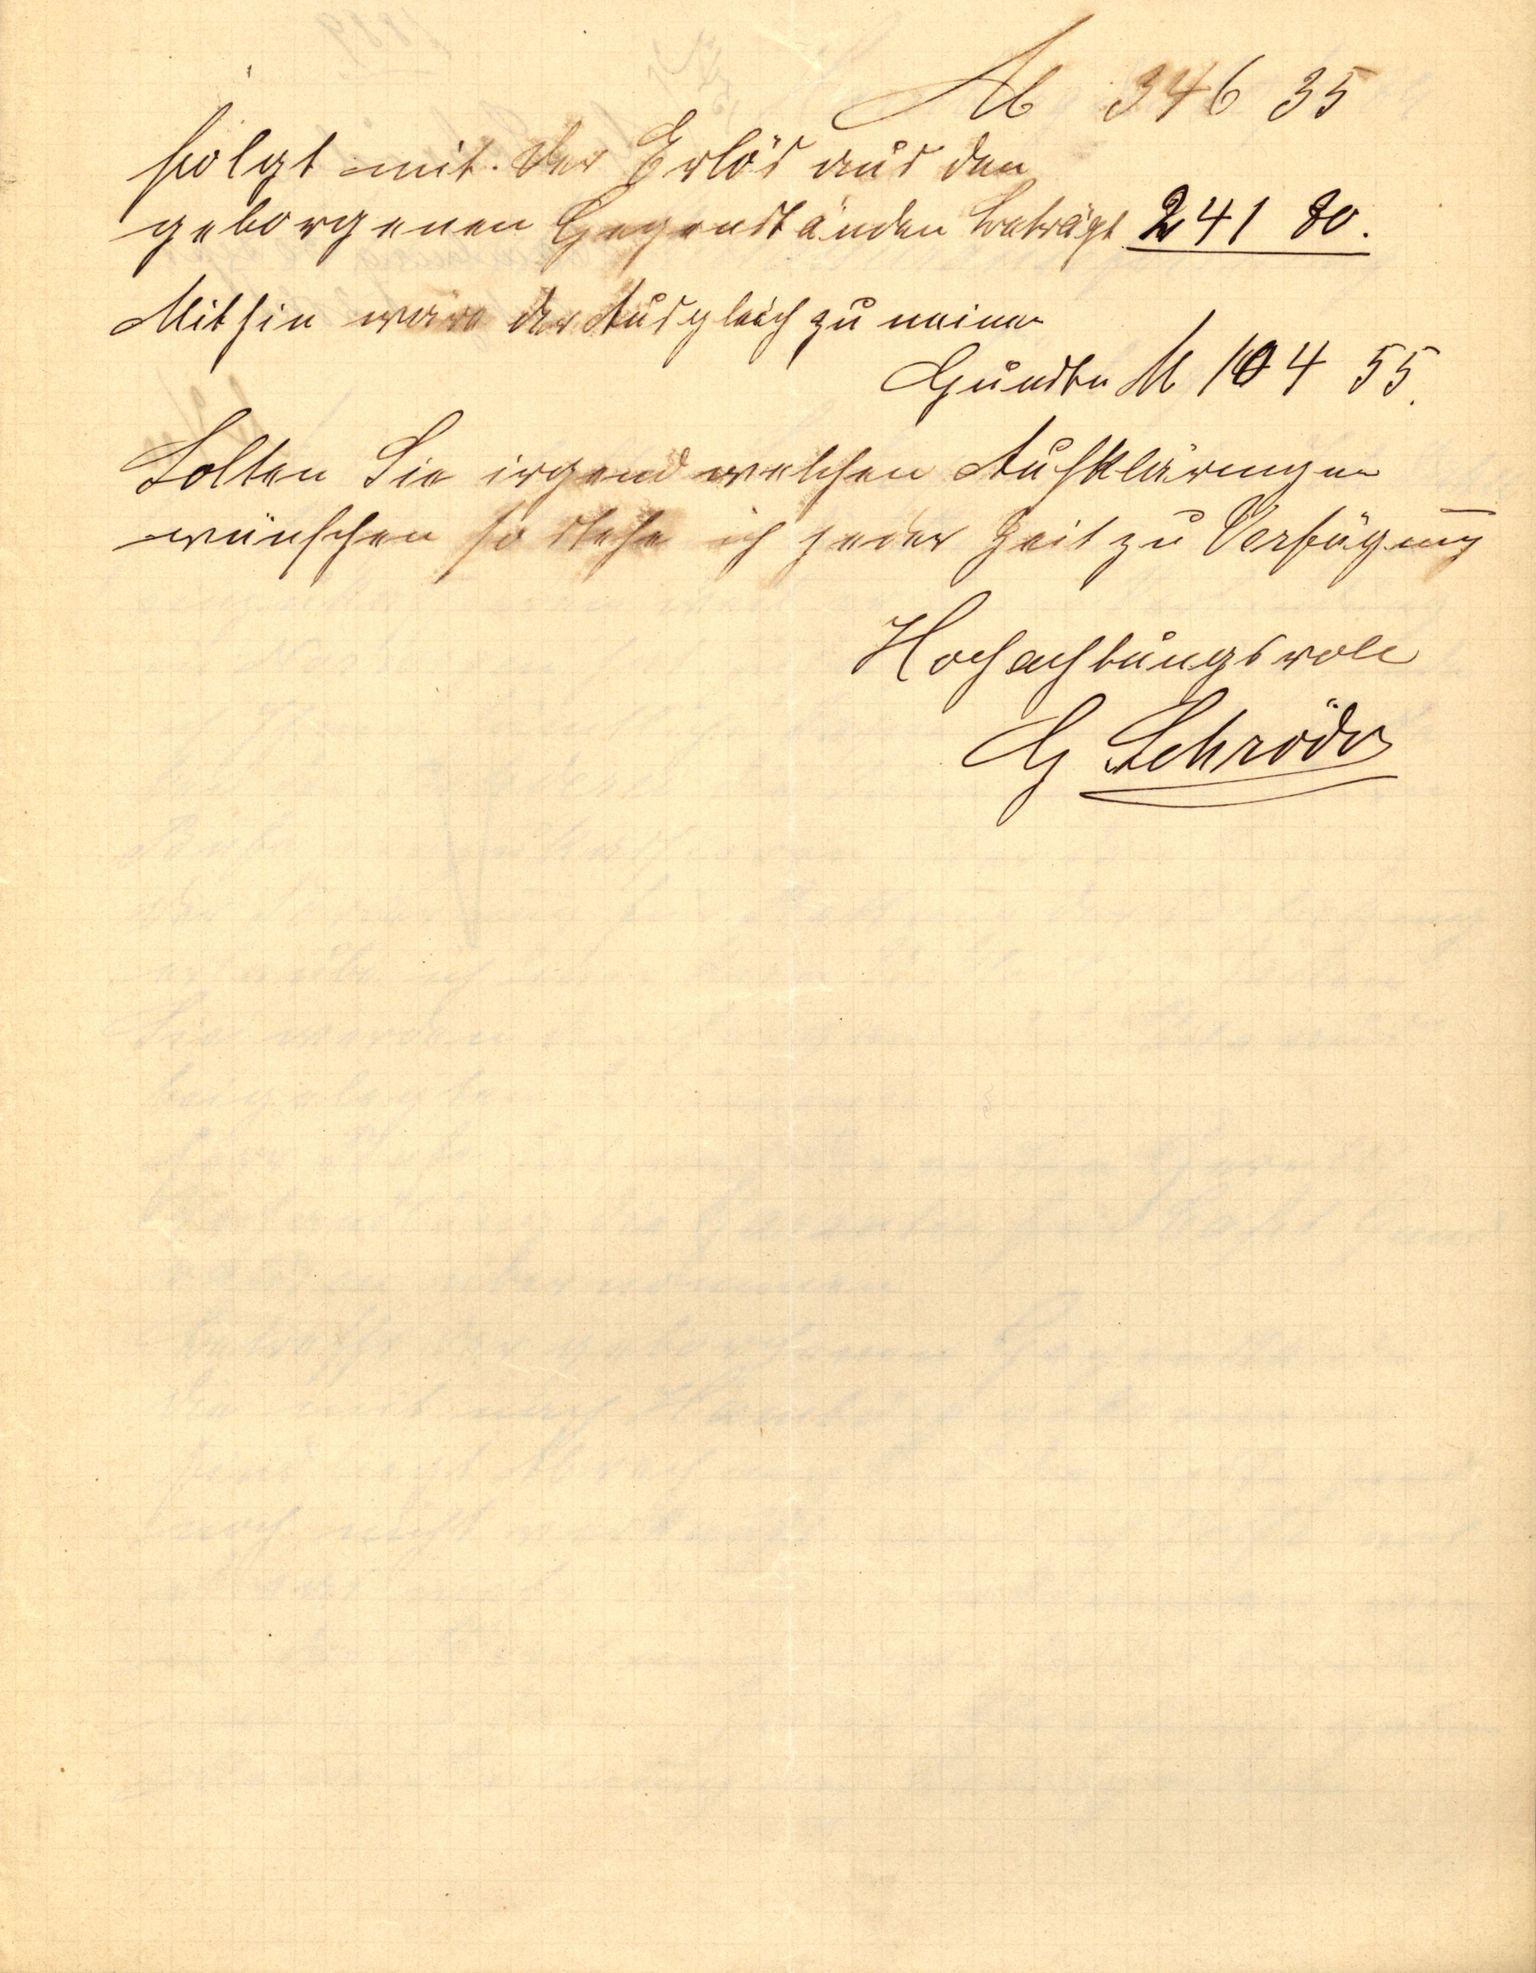 M 346 35
folgt mit. Der Erlös aus den
geborgenen Gegenständen beträgt 241 80.
Mithin wäre der Ausgleich zu meinen
Gunsten M 104 55.
Solten Sie irgend welchen Aufklärungen
wünschen so stehe ich jeder Zeit zu Verfügung
Hochachtungsvoll
G Schröder